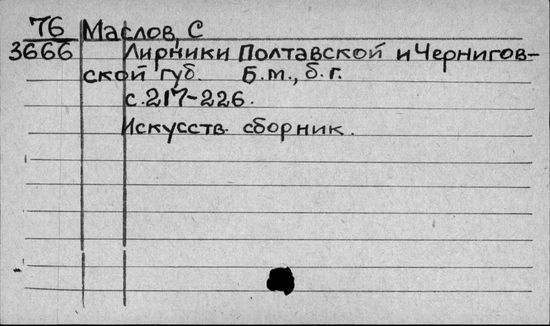 76 Маслов, С
3666 Лирники Полтавской и Чернигов-
ской губ. Б.м., б.г.
с.217-226.
Искусств. сборник.